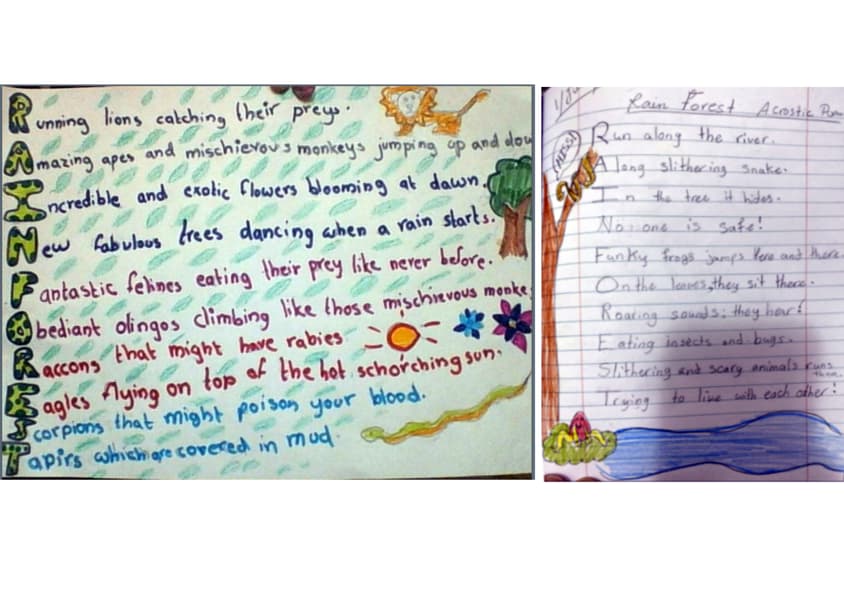 Running lions catching their preys.
Amazing apes and mischievous monkeys jumping up and
Incredible and exotic flowers blooming at dawn.
New fabulous trees dancing when a rain starts.
Fantastic felines eating their prey like never before.
Obediant olingos climbing like those mischievous
Raccons that might have rabies
Eagles flying on top of the hot schorching sun.
Scorpions that might poison your blood.
Tapirs which are covered in mud.
Rain Forest Acrostic
Run along the river.
Along slithering snake.
In the tree it hides.
No one is safe!
Funky frogs jumps here and there.
On the leaves, they sit there.
Roaring sounds; they hear!
Eating insects and bugs.
Slithering and scary animals runs
Trying to live with each other!